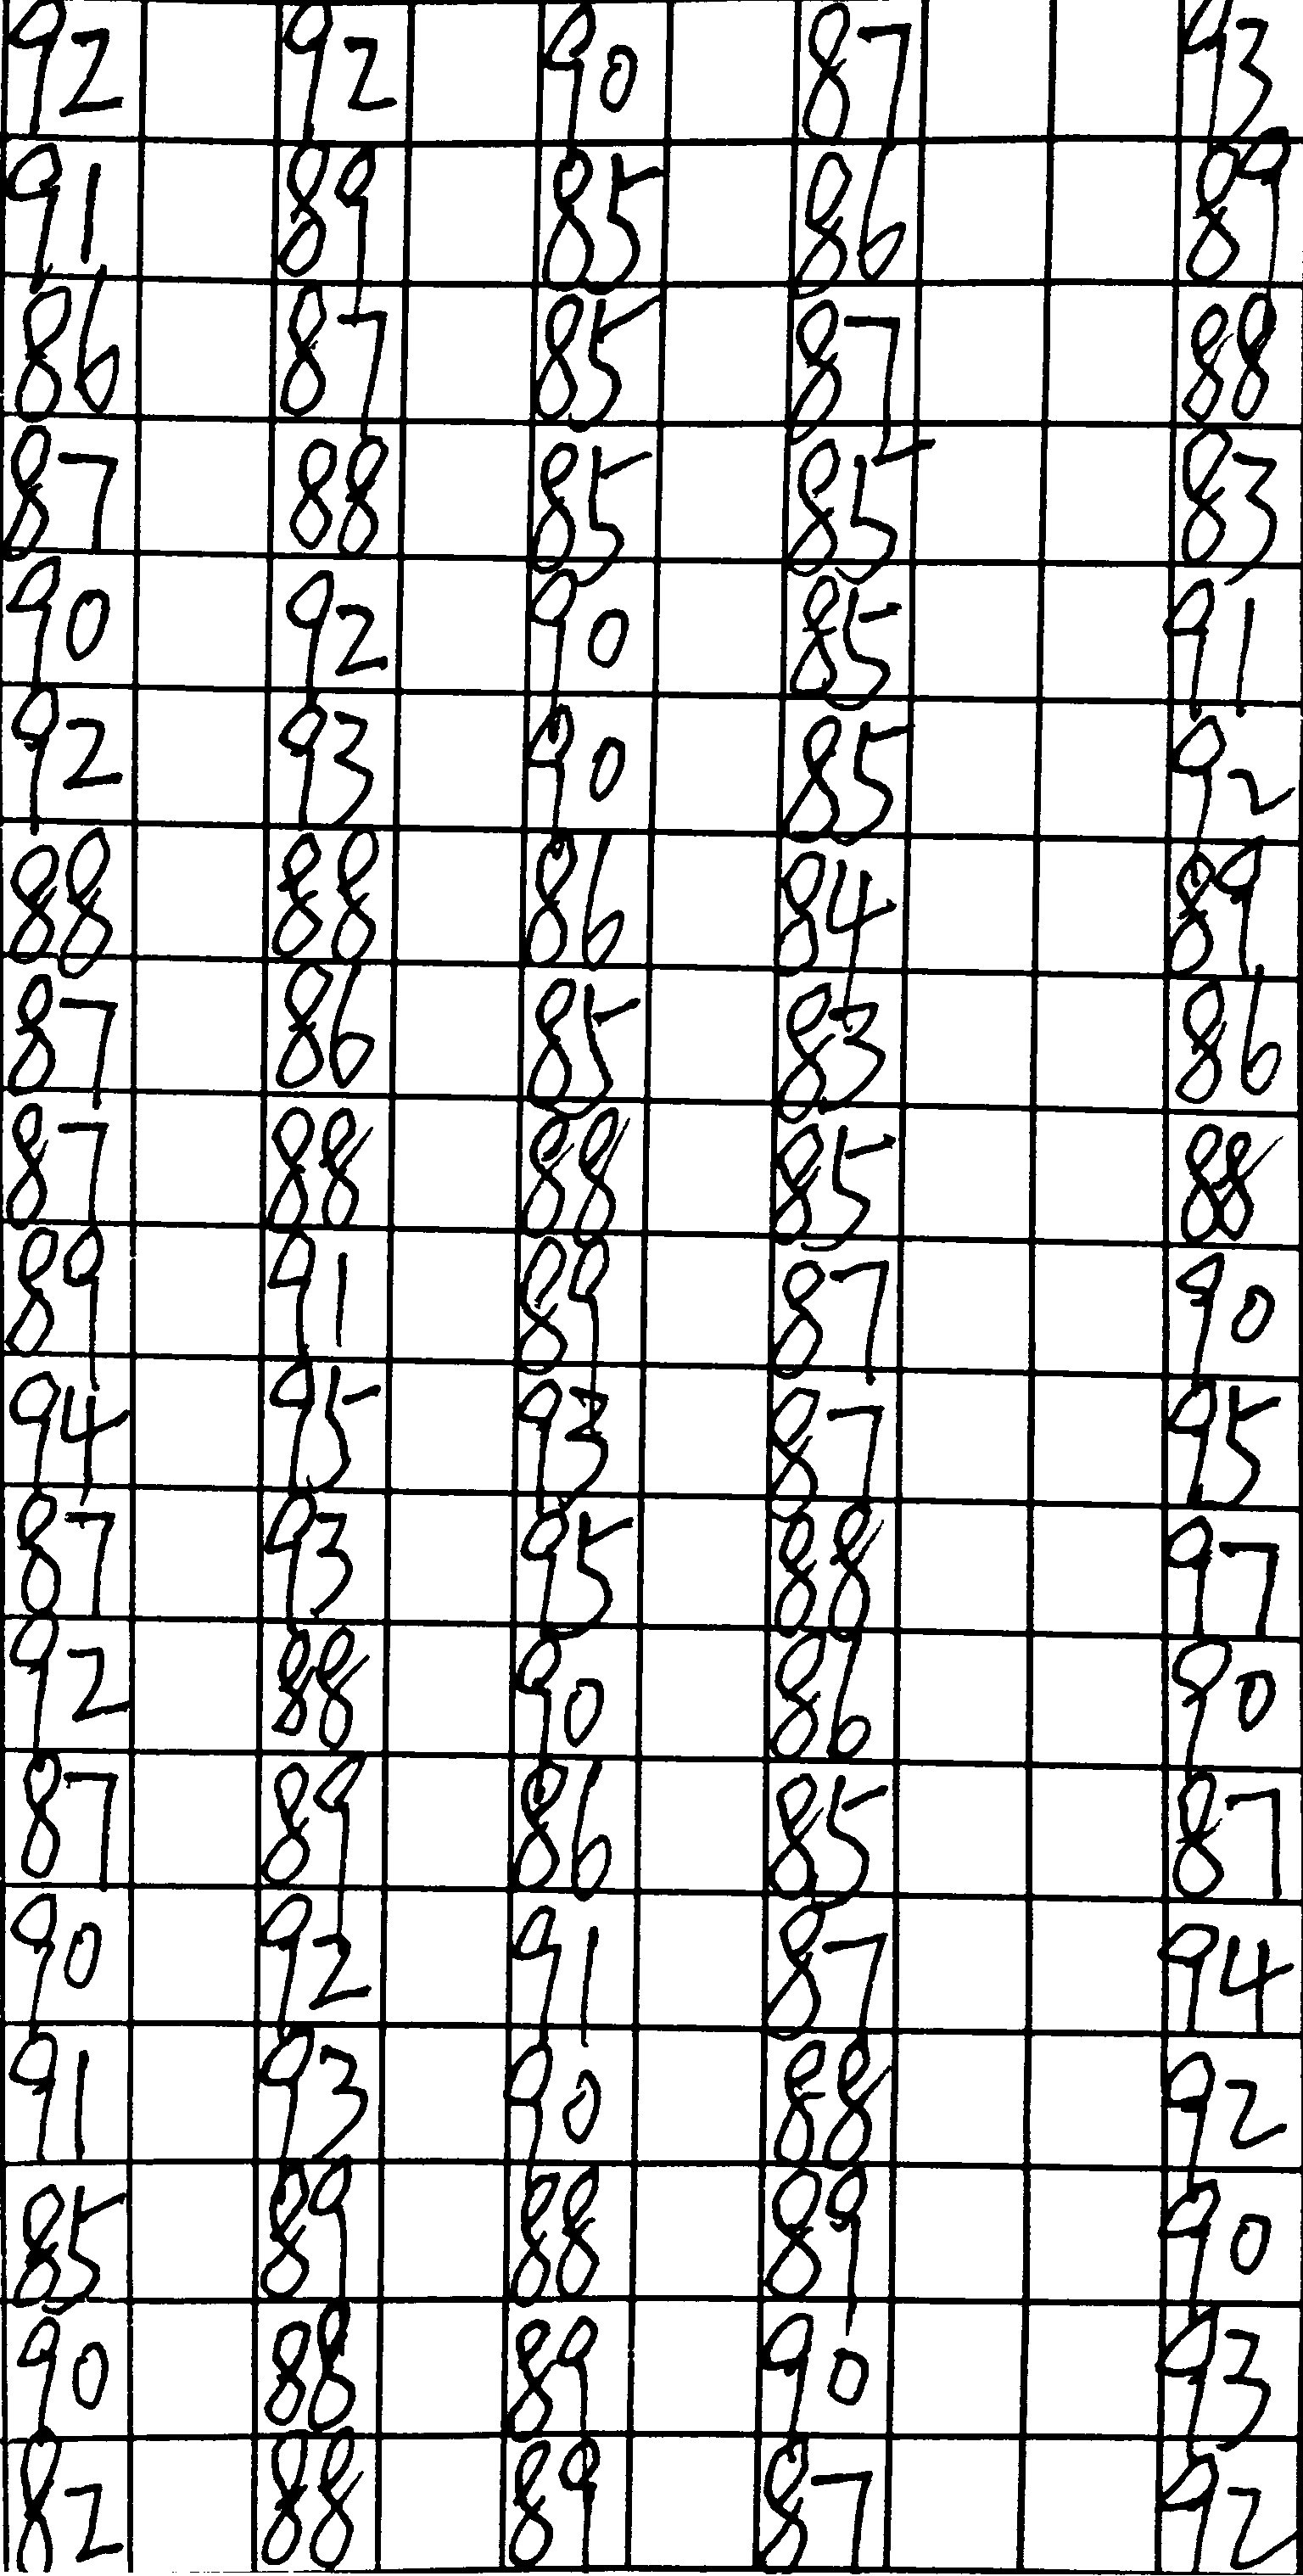 92 92 90 87 93
91 89 85 86 89
86 87 85 87 88
87 88 85 85 83
90 92 90 85 91
92 93 90 85 92
88 88 86 84 89
87 86 85 83 86
87 88 88 85 88
89 91 89 87 90
94 95 93 87 95
87 93 95 88 97
92 88 90 86 90
87 89 86 85 87
90 92 91 87 94
91 93 90 88 92
85 89 88 89 90
90 88 89 90 93
82 88 89 87 92